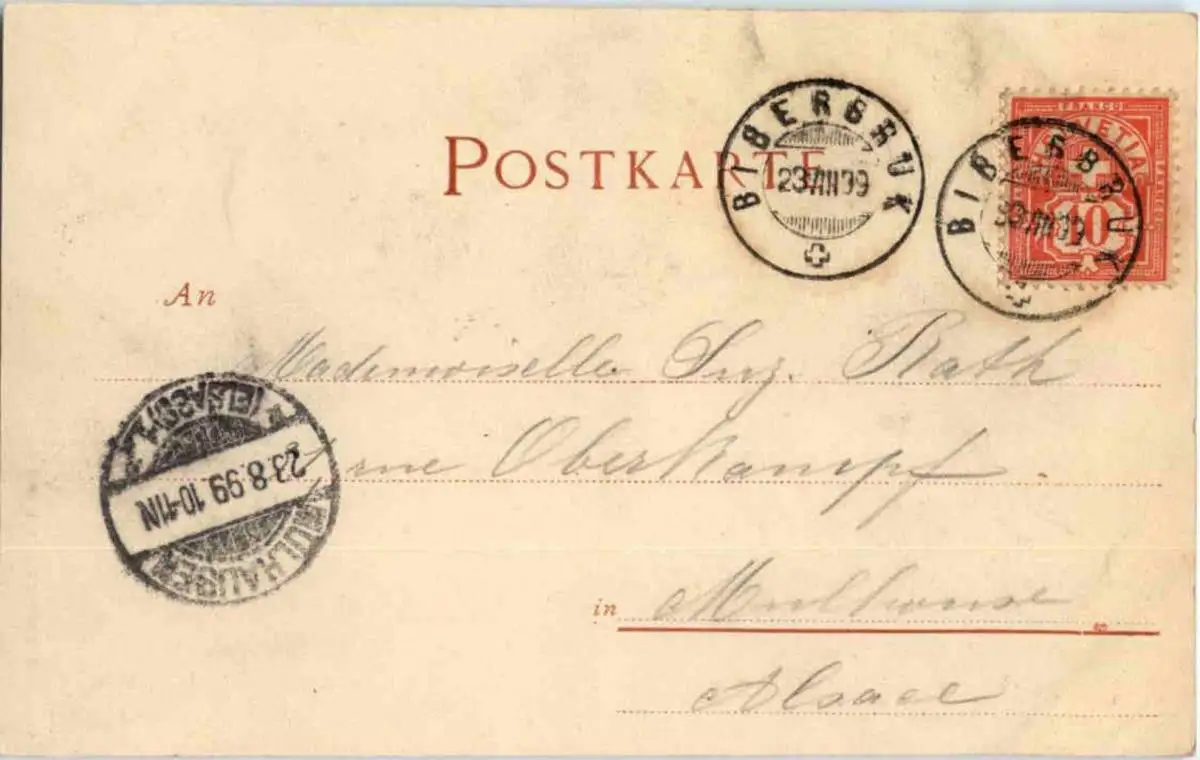 POSTKARTE
BIBERBRUK
23.VIII.99
FRANCO
HELVETIA
10
BIBERBRUK
23.VIII.99
An
Mademoiselle Suz. Rath
rue Oberkampf
MÜLHAUSEN
(ELSASS) 1
23.8.99. 10-11N
in Mulhouse
Alsace